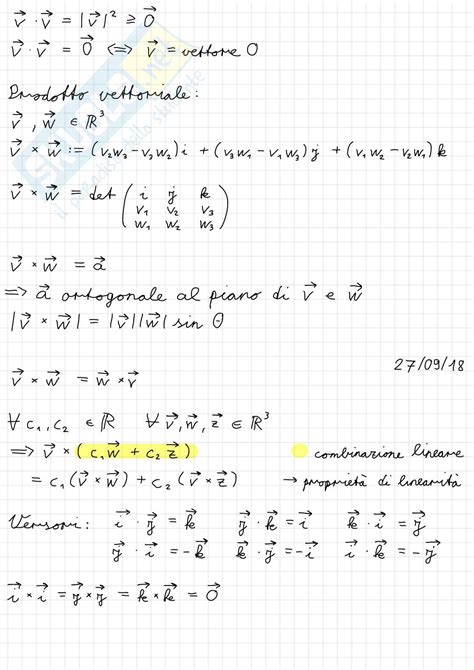 v⃗ · v⃗ = |v⃗|² ≥ 0⃗
v⃗ · v⃗ = 0⃗ <=> v⃗ = vettore 0
Prodotto vettoriale:
v⃗, w⃗ ∈ ℝ³
v⃗ × w⃗ := (v₂w₃ - v₃w₂)i + (v₃w₁ - v₁w₃)j + (v₁w₂ - v₂w₁)k
v⃗ × w⃗ = det ( i j k
v₁ v₂ v₃
w₁ w₂ w₃ )
v⃗ × w⃗ = a⃗
=> a⃗ ortogonale al piano di v⃗ e w⃗
|v⃗ × w⃗| = |v⃗||w⃗| sin θ
27/09/18
v⃗ × w⃗ = w⃗ × v⃗
∀ c₁, c₂ ∈ ℝ ∀ v⃗, w⃗, z⃗ ∈ ℝ³
=> v⃗ × (c₁w⃗ + c₂z⃗) combinazione lineare
= c₁(v⃗ × w⃗) + c₂(v⃗ × z⃗) → proprietà di linearità
Versori: i⃗ · j⃗ = k⃗ j⃗ · k⃗ = i⃗ k⃗ · i⃗ = j⃗
j⃗ · i⃗ = -k⃗ k⃗ · j⃗ = -i⃗ i⃗ · k⃗ = -j⃗
i⃗ × i⃗ = j⃗ × j⃗ = k⃗ × k⃗ = 0⃗